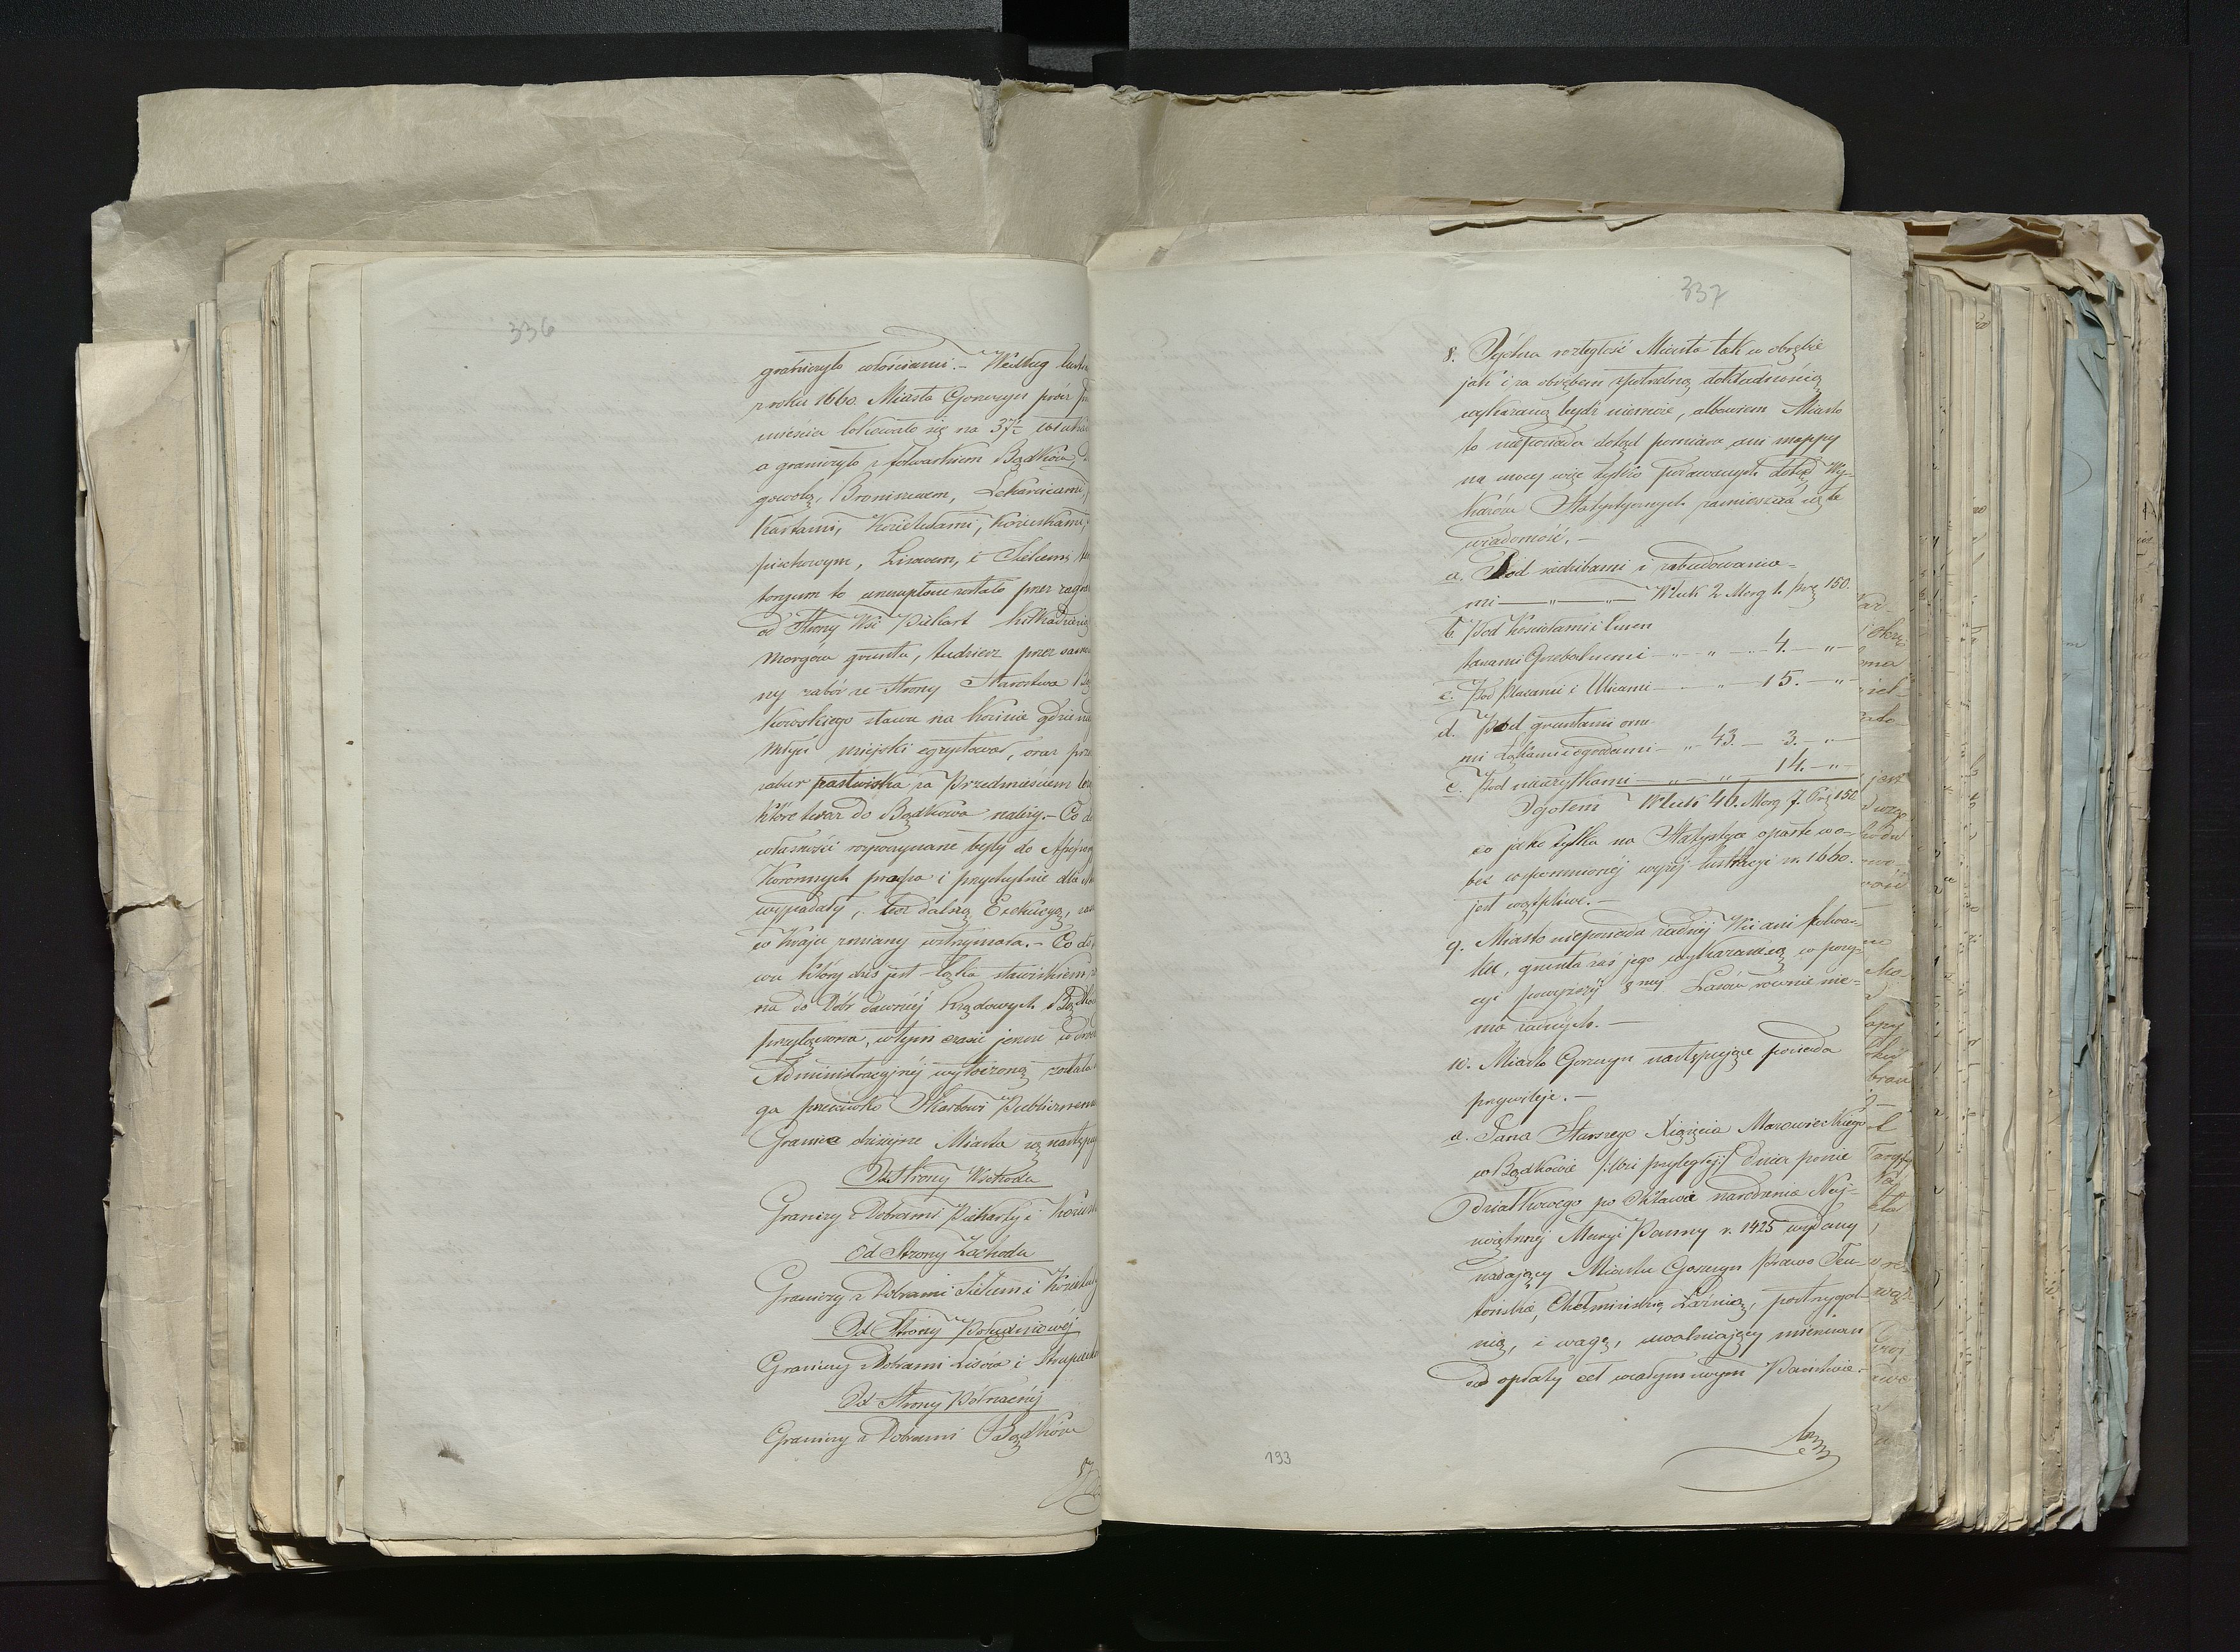 336
graniczyło włościami. – Według lustra
z roku 1660. Miasto Goszczyn prócz Prz
mieścia lokowało się na 37½ włukac
a graniczyło z folwarkiem Bądków,
gowolą, Broniszewem, Lekarcicami,
Kartami, Kozietułami, Kozieskami,
pischowym, Lisowem, i Sielcem,
toryum to uszczuplone zostało przez zagra
od Strony Wsi Piekart kilkadziesią
Morgów gruntu, tudzież przez samow
ny zabór ze Strony Starostwa Bąd
kowskiego stawu na końcu gdzie nad
Młyn miejski egzystował, oraz prze
zabór pastwiska za Przedmieściem
które teraz do Bądkowa należy. – Co do
własności rozpoczynane były do Assesor
Koronnych processa i przychylnie dla M
wypadały, lecz dalszą Exekucyą, zasz
w kraju zmiany wstrzymała. – Co do
wu który dziś jest Łąką stawiskiem,
na do Dóbr dawniéj Rządowych Bądków
przyłączona, w tym czasie jeszcze w drod
Administracyjnéj wytoczoną została
ga przeciwko Skarbowi Publicznemu
Granice dzisiejsze Miasta są następu
Od Strony Wschodu
Graniczy z Dobrami Piekarty i Kozie
Od Strony Zachodu
Graniczy z Dobrami Sielcem i Kozietuły
Od Strony Południowéj
Graniczy z Dobrami Lisów i
Od Strony Północnéj
Graniczy z Dobrami Bądków
337
8. Ogólna rozległość Miasta tak w obrębie
jak i za obrębem z potrzebną dokładnością
wykazaną bydź niemoże, albowiem Miasto
to nieposiada dotąd pomiaru ani mappy
na mocy więc tylko podawanych dotąd Wy-
kazów Statystycznych zamieszcza się ta
wiadomość. –
a. Pod siedzibami i zabudowania-
mi — " — " — Włuk 2 Morg 1. Prę 150.
b. Pod Kościołami i Cmen
tarzami Grzebalnemi — " — 4. — "
c. Pod Placami i Ulicami — " — 15. — "
d. Pod gruntami orne
mi Łąkami i ogrodami — " 43. — 3. — "
e. Pod nieużytkami — " — " 14. — "
Ogółem Włuk 46. Morg 7. Prę 150
co jako tylko na Statystyce oparte wo-
bec wspomnionéj wyżéj lustracyi r. 1660.
jest wątpliwe. –
9. Miasto nieposiada żadnéj Wsi ani folwar-
ku, grunta zaś jego wykazane są w pozy-
cyi powyższéj 8mej Lasów równie nie-
ma żadnych. –
10. Miasto Goszczyn następujące posiada
przywileje. –
a. Jana Starszego Xiążęcia Mazowieckiego
w Bądkowie /:Wsi przyległéj:/ dnia ponie
działkowego po Oktawie narodzenia Naj-
świętszéj Maryi Panny r. 1425 wydany
nadający Miastu Goszczyn Prawo Teu
tońskie, Chełmińskie, Łaźnią, postrzygal-
nią, i wagę, uwalniający mieszczan
od opłaty ceł w całym swym Państwie.
193